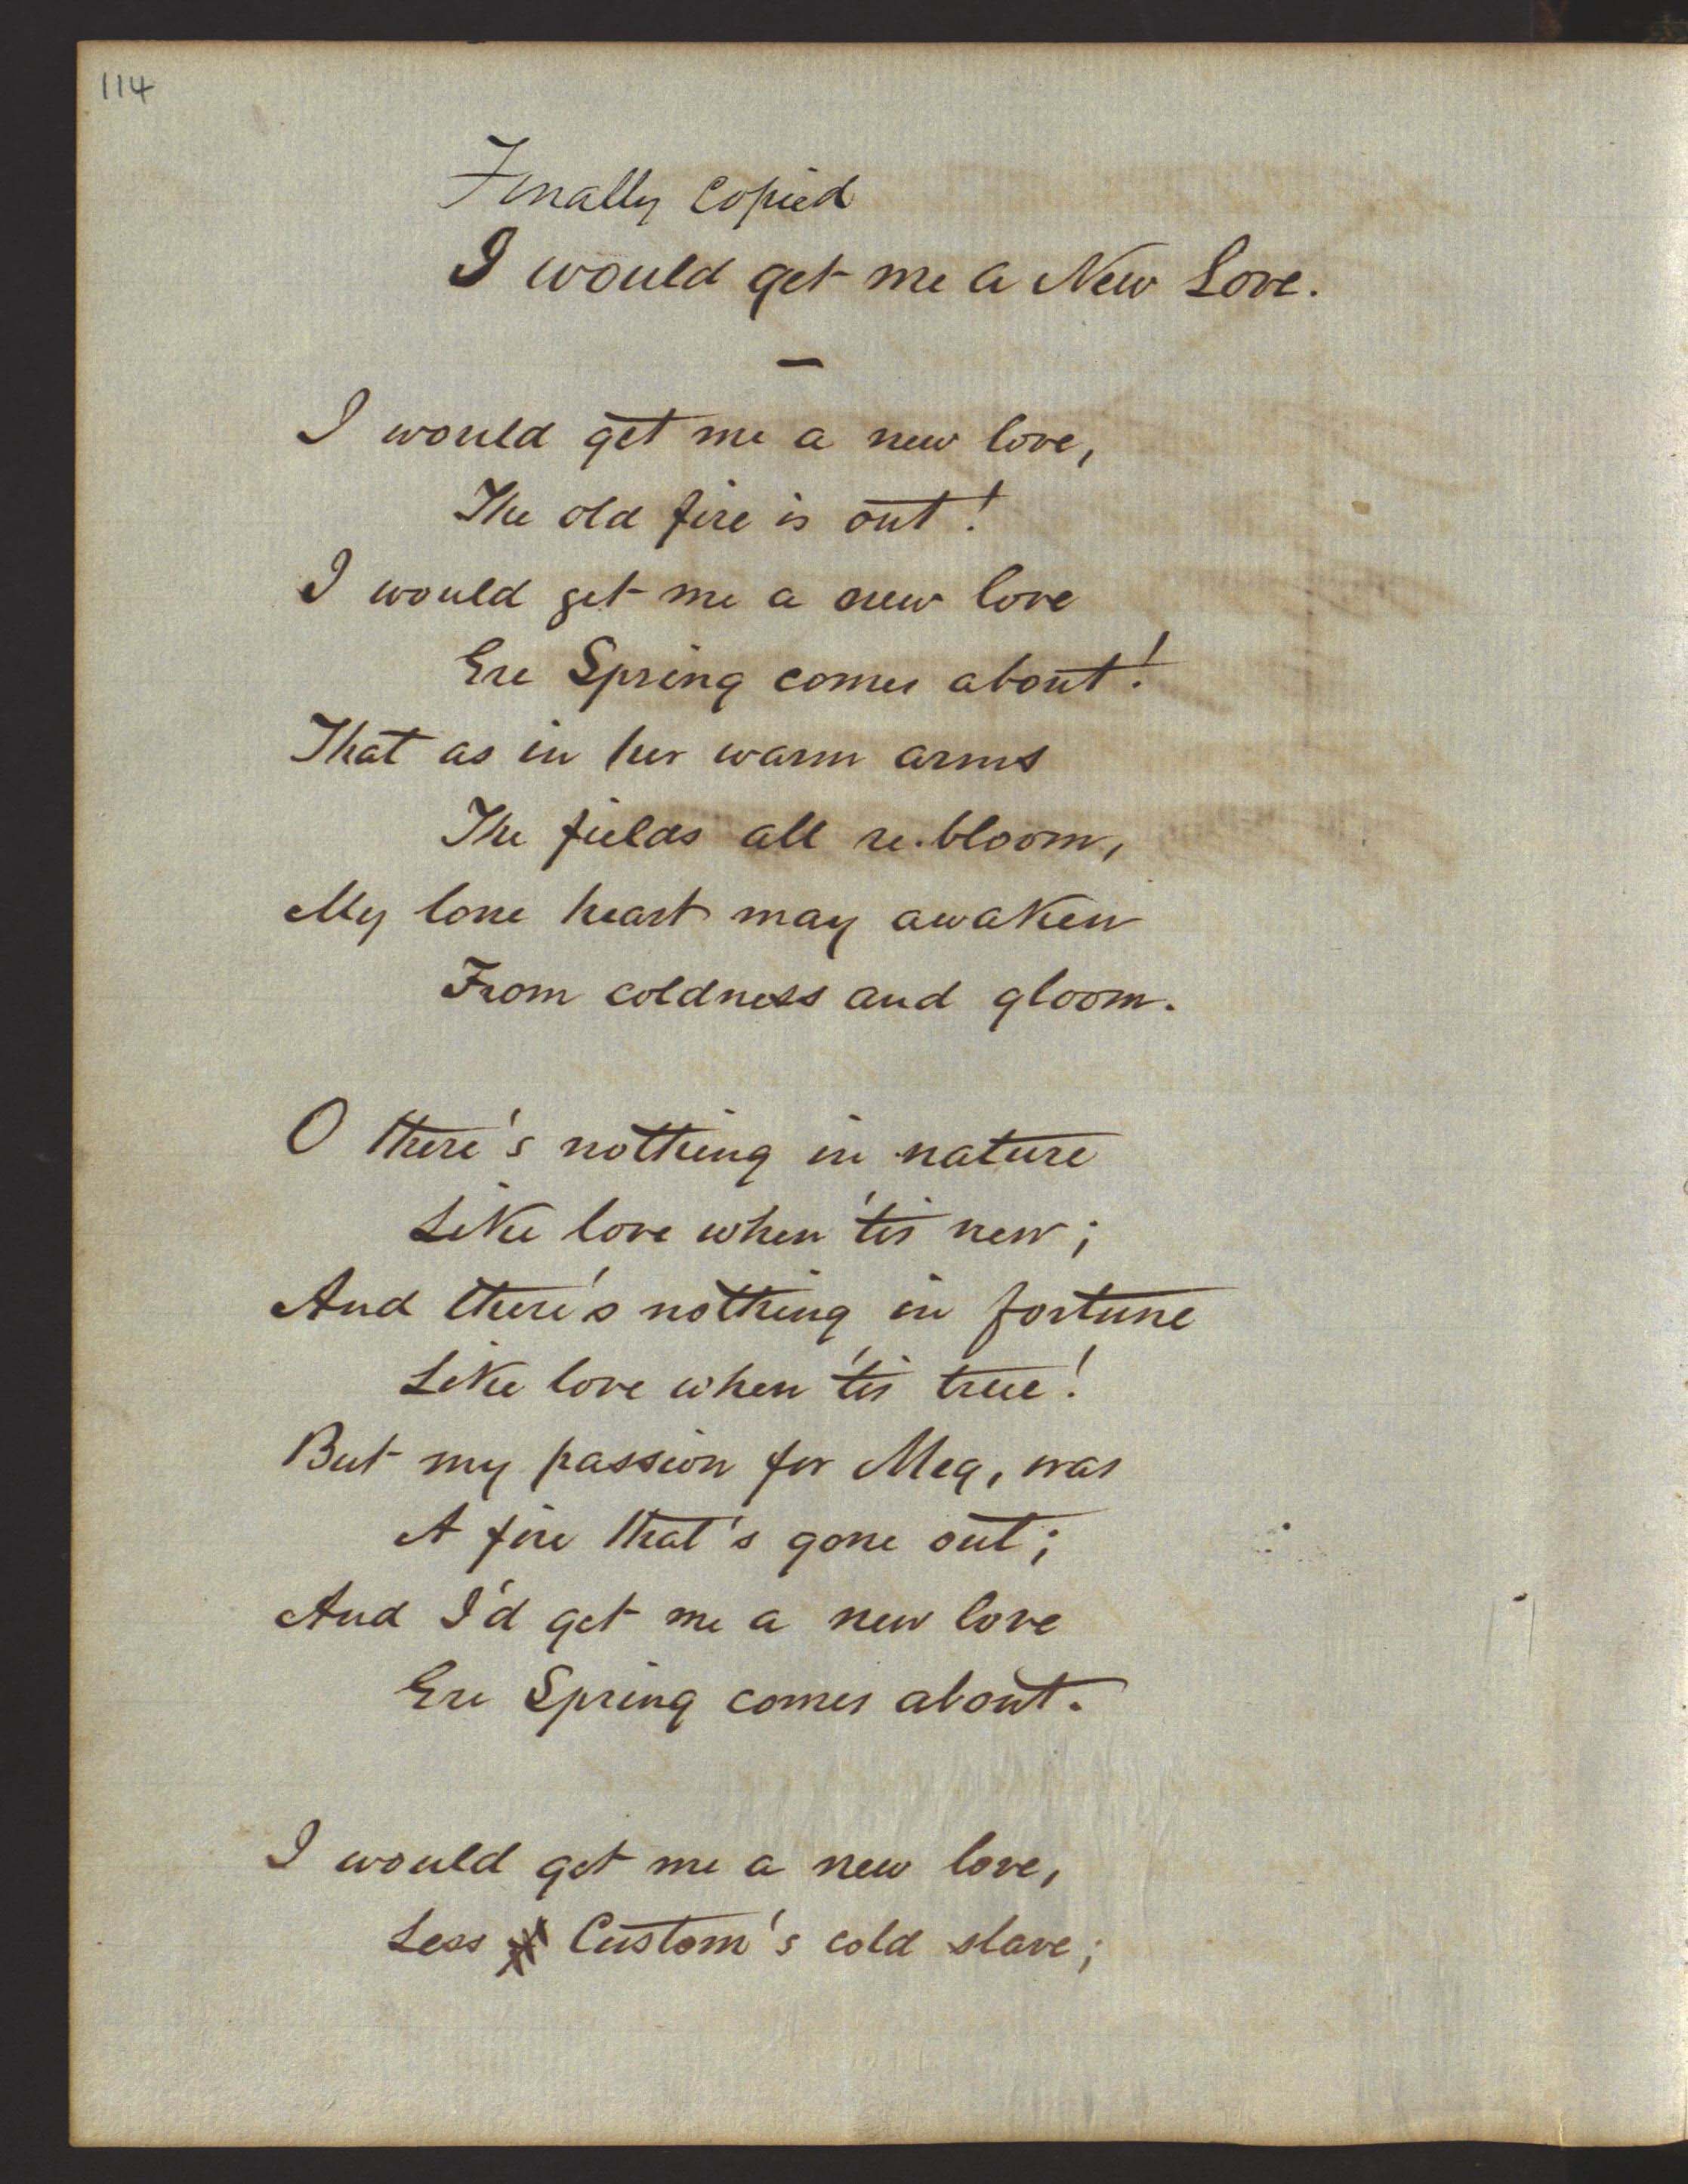 114
Finally Copied
I would get me a New Love.
—
I would get me a new love,
The old fire is out!
I would get me a new love
Ere Spring comes about!
That as in her warm arms
The fields all re-bloom,
My lone heart may awaken
From coldness and gloom.
O there's nothing in nature
Like love when 'tis new;
And there's nothing in fortune
Like love when 'tis true!
But my passion for Meg, was
A fire that's gone out;
And I'd get me a new love
Ere Spring comes about.
I would get me a new love,
Less Custom's cold slave;